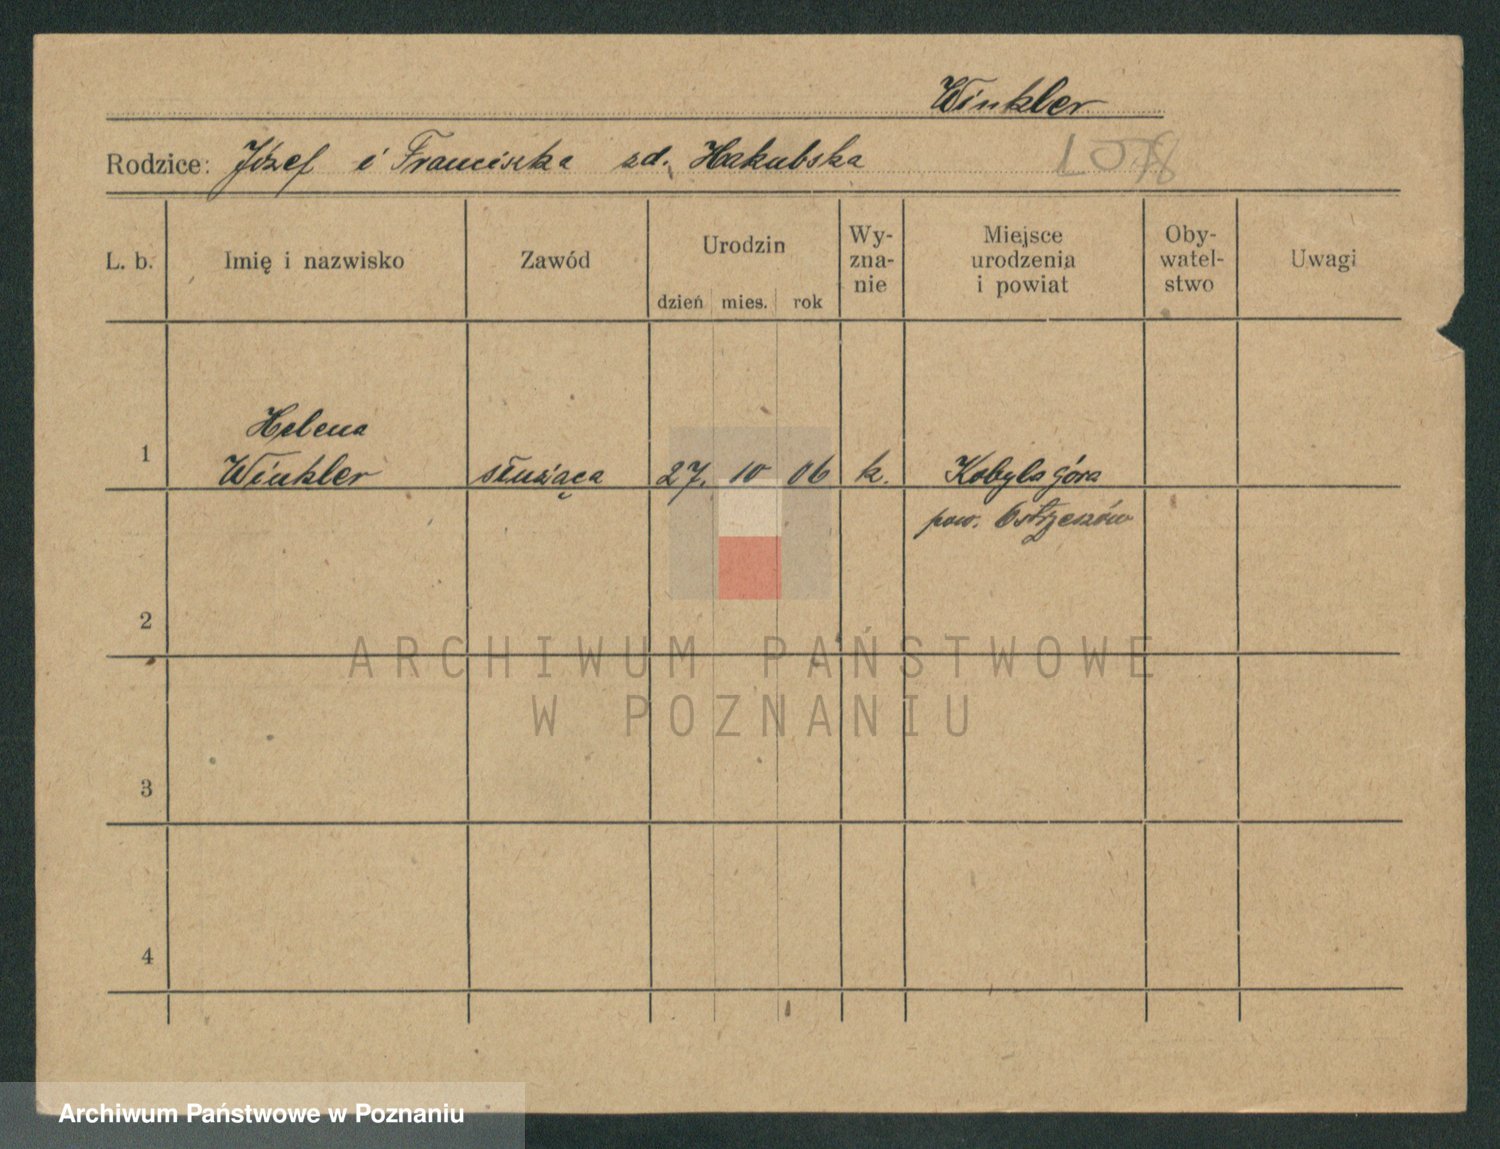 Winkler
Rodzice: Józef i Franciszka zd. Hakubska
L. b. Imię i nazwisko Zawód Urodzin dzień mies. rok Wy-zna-nie Miejsce urodzenia i powiat Oby-watel-stwo Uwagi
Helena
1 Winkler służąca 27. 10 06 k. Kobyla góra
pow. Ostrzeszów
2
ARCHIWUM PAŃSTWOWE
W POZNANIU
3
4
Archiwum Państwowe w Poznaniu